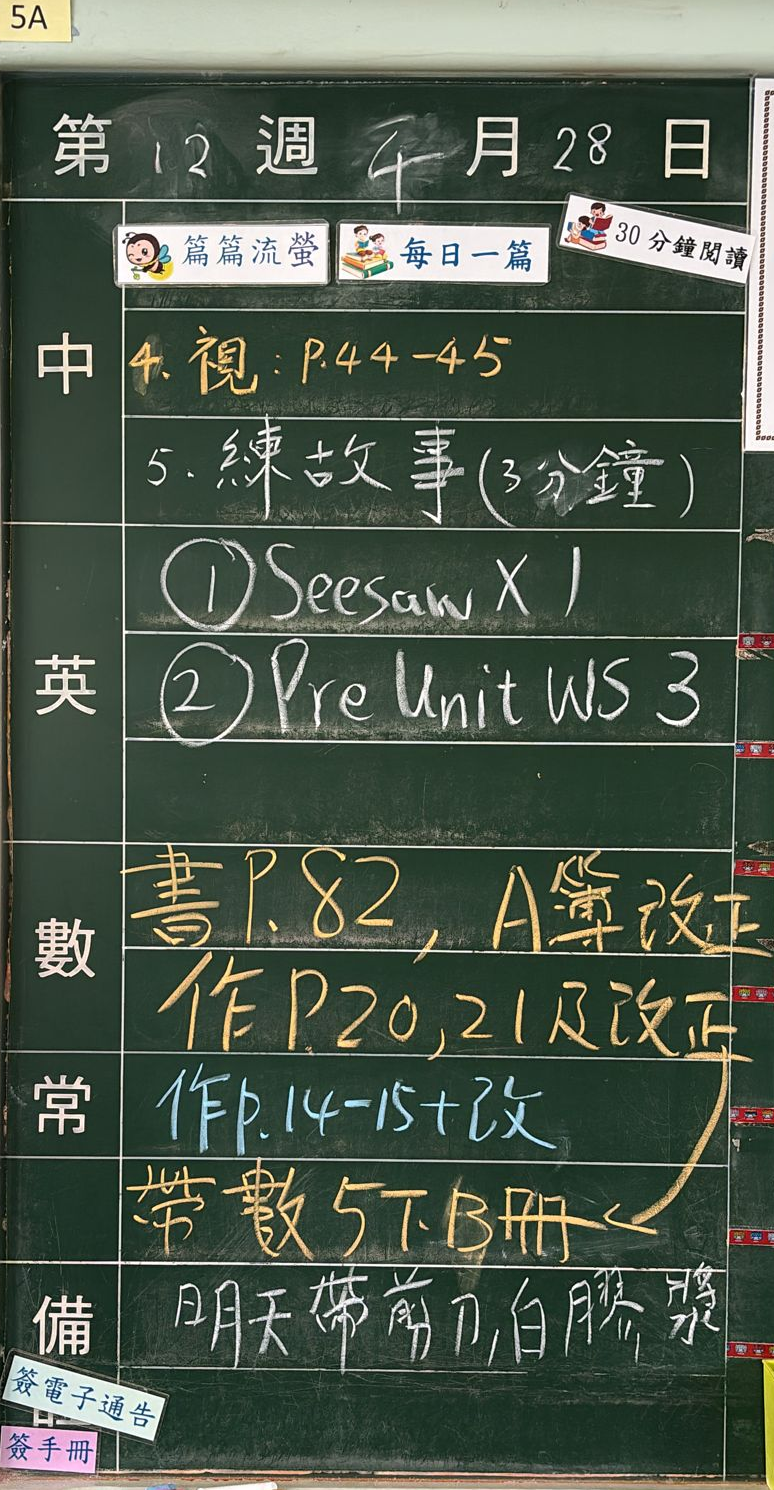 5A
第 12 週 4 月 28 日
篇篇流螢 每日一篇 30分鐘閱讀
中
4. 視：P.44-45
5. 練故事(3分鐘)
英
① Seesaw X 1
② Pre Unit WS 3
數
書P.82, A簿改正
作P.20,21及改正
常
作p.14-15+改
帶數5下B冊
備
明天帶剪刀,白膠漿
簽電子通告
簽手冊